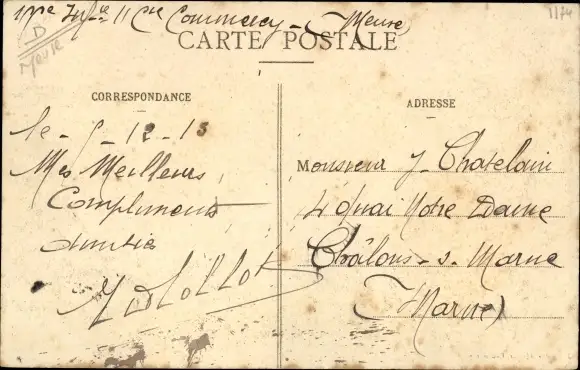 Inf^ie 11 C^ie Commercy - Meuse
1174
D
Meuse
CARTE POSTALE
CORRESPONDANCE
ADRESSE
le - 12 - 13
Mes Meilleurs
Compliments
Monsieur J. Chatelain
4 Quai Notre Dame
Châlons - s - Marne
(Marne)